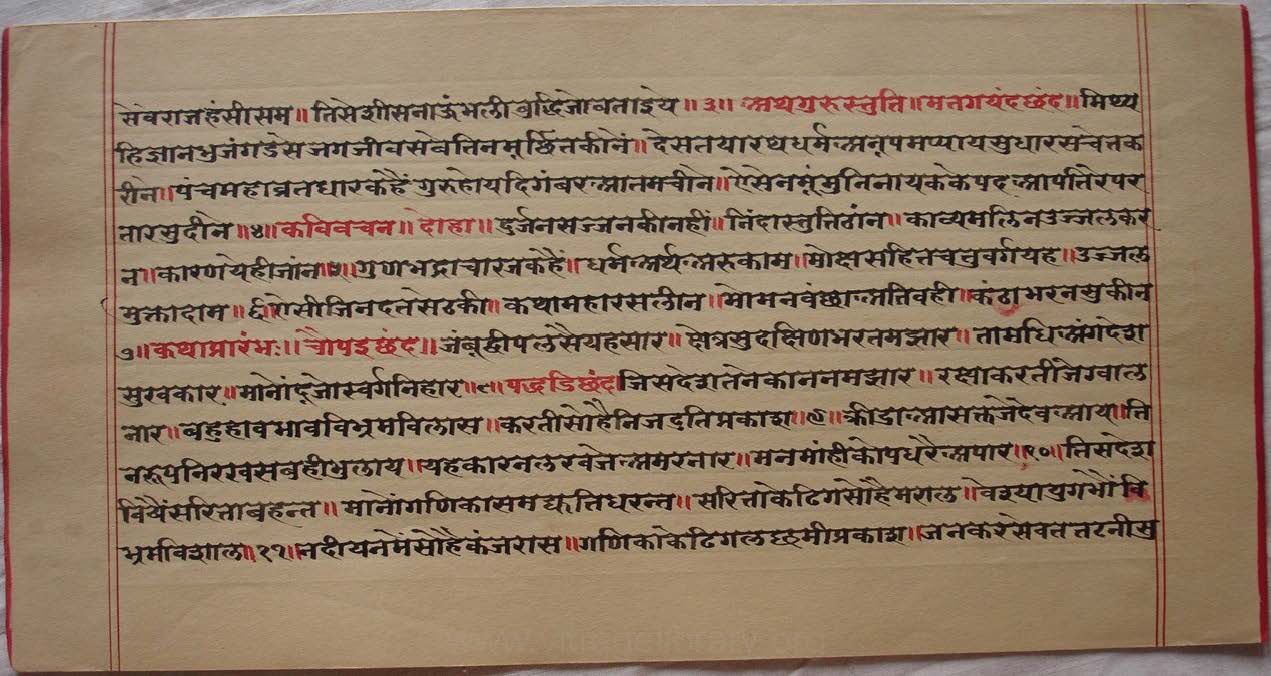 सेवेराजहंसीसम॥तिसेशीसनाऊंभलीबुद्धिजोबताइये॥३॥अथगुरुस्तुति॥मत्तगयंदछंद॥मिथ्य
हिज्ञानभुजंगडसेजगजीवसबेतिनमूर्छितकीनें॥देसतयारथधर्मअनूपमप्यायसुधारसचेतक
रीने॥पंचमहाव्रतधारकहैंगुरुहोयदिगंबरआतमचीने॥ऐसेनमूंमुनिनायककेपदआपतिरेपर
तारसुदीने॥४॥कविवचन॥दोहा॥दुर्जनसज्जनकीनहीं॥निंदास्तुतिठांन॥काव्यमलिनउज्जलकर
न॥कारणयेहीजांन॥५॥गुणभद्राचारजकहैं॥धर्मअर्थअरुकाम॥मोक्षसहितचतुवर्गयह॥उज्जल
मुक्तादाम॥६॥ऐसीजिनदतसेठकी॥कथामहारसलीन॥मोमनवंछाअतिवही॥कंठाभरनसुकीन
७॥कथाप्रारंभः॥चौपइछंद॥जंबूद्वीपलसैयहसार॥क्षेत्रसुदक्षिणभरतमझार॥तामधिअंगदेश
सुखकार॥मानोंदूजोस्वर्गनिहार॥८॥पद्धडिछंद॥जिसदेशतनेकाननमझार॥रक्षाकरतीजेग्वाल
नार॥बहुहावभावविभ्रमविलास॥करतीसोहैनिजदुतिप्रकाश॥९॥क्रीडाआसक्तजेदेवआय॥ति
नरूपनिरखसबहीभुलाय॥यहकारनलखेजेअमरनार॥मनमांहीकोपधरैअपार॥१०॥तिसदेश
विषैंसरिताबहन्त॥मानोंगणिकासमद्युतिधरन्त॥सरिताकेढिगसोहैमराल॥वेश्यायुगभौंवि
भ्रमविशाल॥११॥नदीयनमेंसोहैकंजरास॥गणिकाकेढिगलछमीप्रकाश॥जनकरसेवततटनीसु